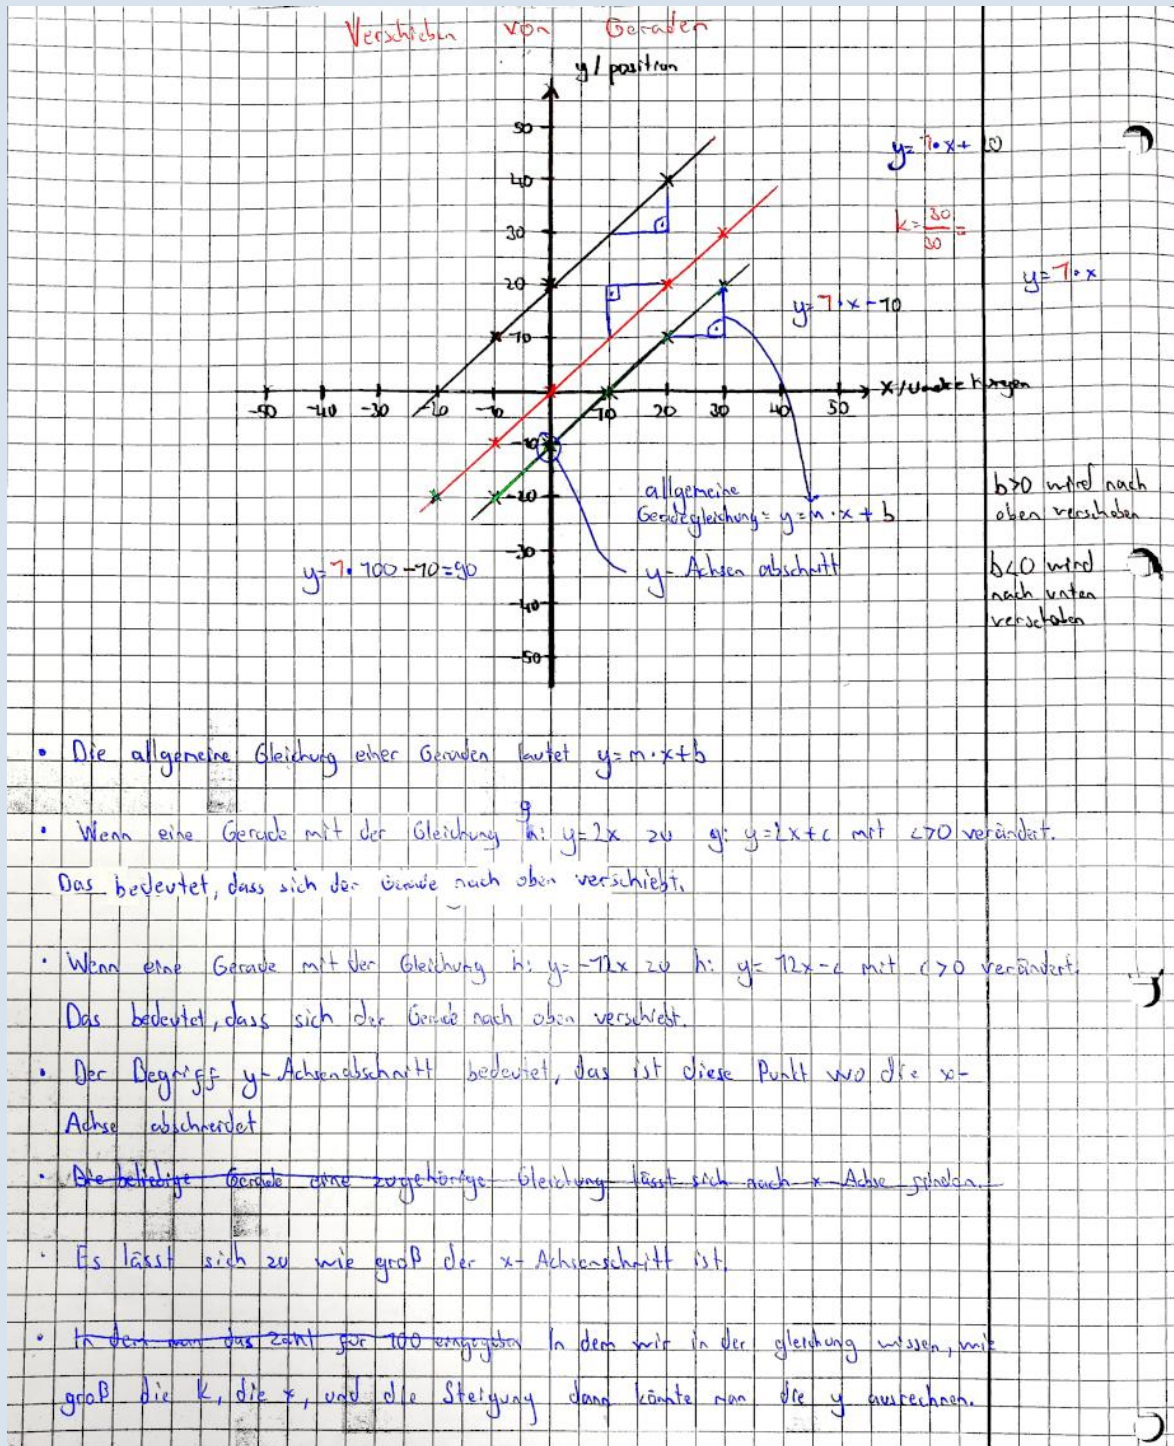 Verschieben von Geraden
y/position
50
40
30
20
10
-50 -40 -30 -20 -10 10 20 30 40 50
-10
-20
-30
-40
-50
y=1·x+20
k=30/30=
y=1·x
y=1·x-10
allgemeine
Geradegleichung= y=m·x+b
y-Achsenabschnitt
y=1·100-10=90
b>0 wird nach
oben verschoben
b<0 wird
nach unten
verschoben
• Die allgemeine Gleichung einer Geraden lautet y=m·x+b
g
• Wenn eine Gerade mit der Gleichung h: y=2x zu g: y=2x+c mit c>0 verändert.
Das bedeutet, dass sich der Gerade nach oben verschiebt.
• Wenn eine Gerade mit der Gleichung h: y=-12x zu h: y=12x-c mit c>0 verändert.
Das bedeutet, dass sich der Gerade nach oben verschiebt.
• Der Begriff y-Achsenabschnitt bedeutet, das ist diese Punkt wo die x-
Achse abschneidet
• Die beliebige Gerade eine zugehörige Gleichung lässt sich nach x-Achse finden.
• Es lässt sich zu wie groß der x-Achsenschnitt ist.
• In dem man das Zahl für 100 eingegeben In dem wir in der gleichung wissen, wie
groß die k, die x, und die Steigung dann könnte man die y ausrechnen.